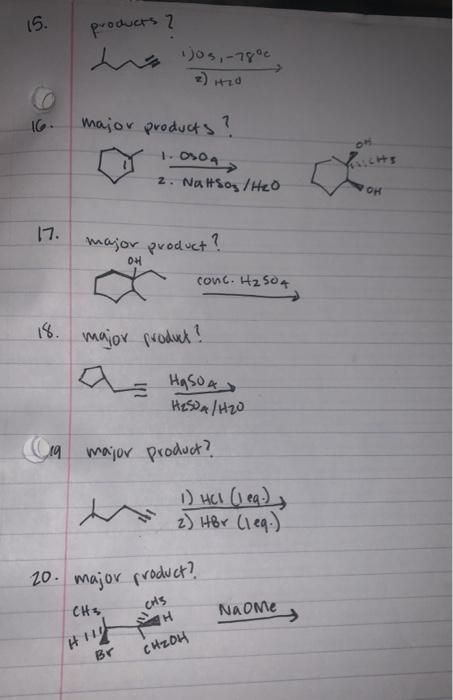 15. products?
1) O3, -78°C
2) H2O
16. major products?
1. OsO4
2. NaHSO3/H2O
OH
CH3
OH
17. major product?
OH
conc. H2SO4
18. major product?
HgSO4
H2SO4/H2O
19 major product?
1) HCl (1 eq.)
2) HBr (1 eq.)
20. major product?
CH3
CH3
H
H
Br
CH2OH
NaOMe